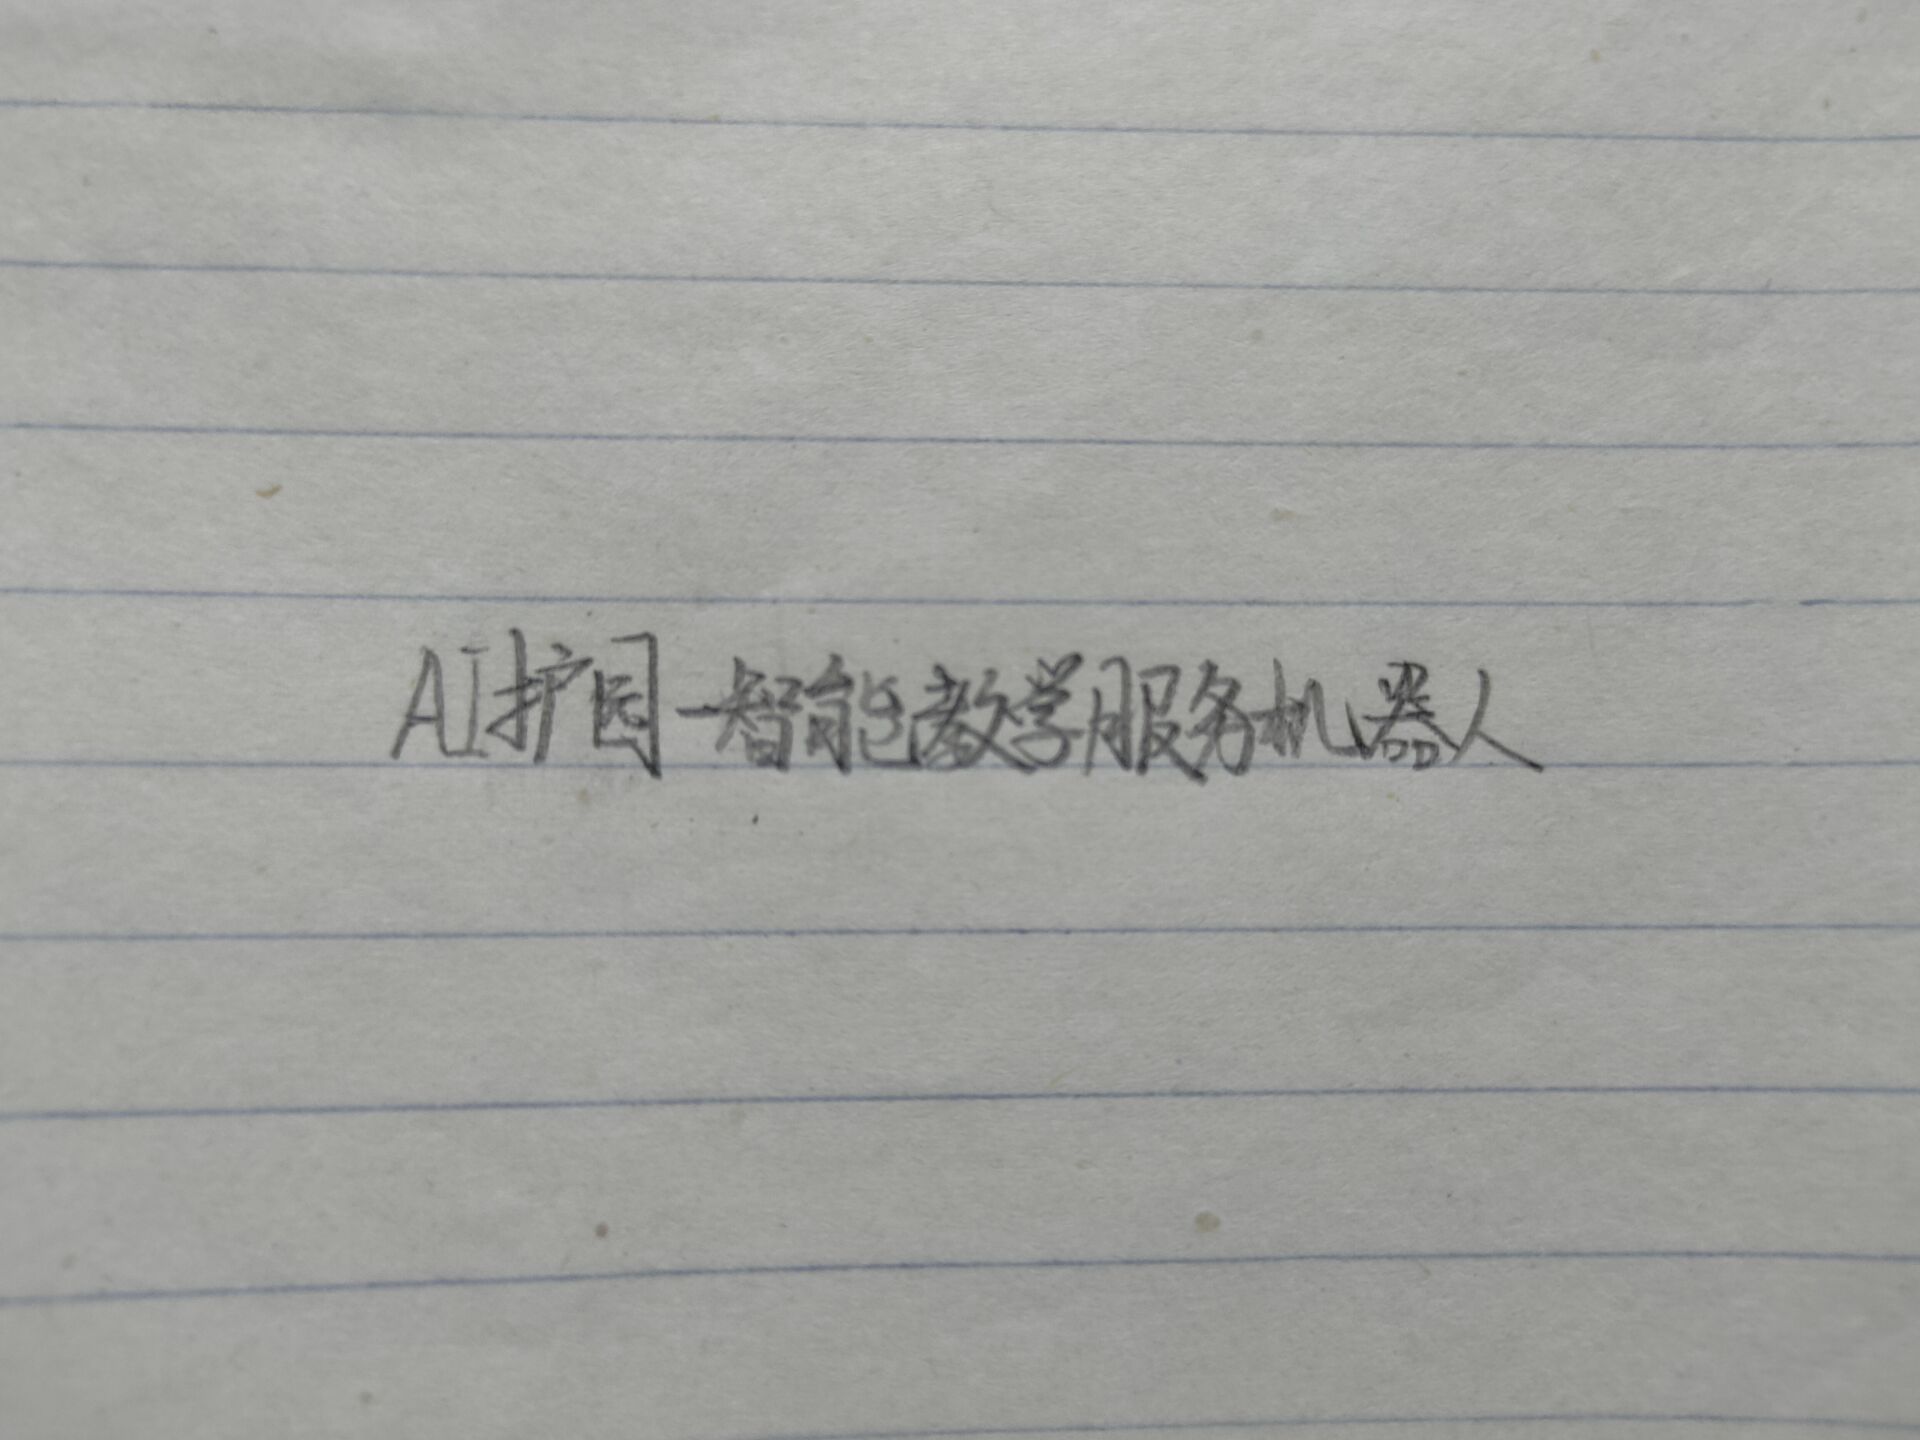 AI护园-智能教学服务机器人